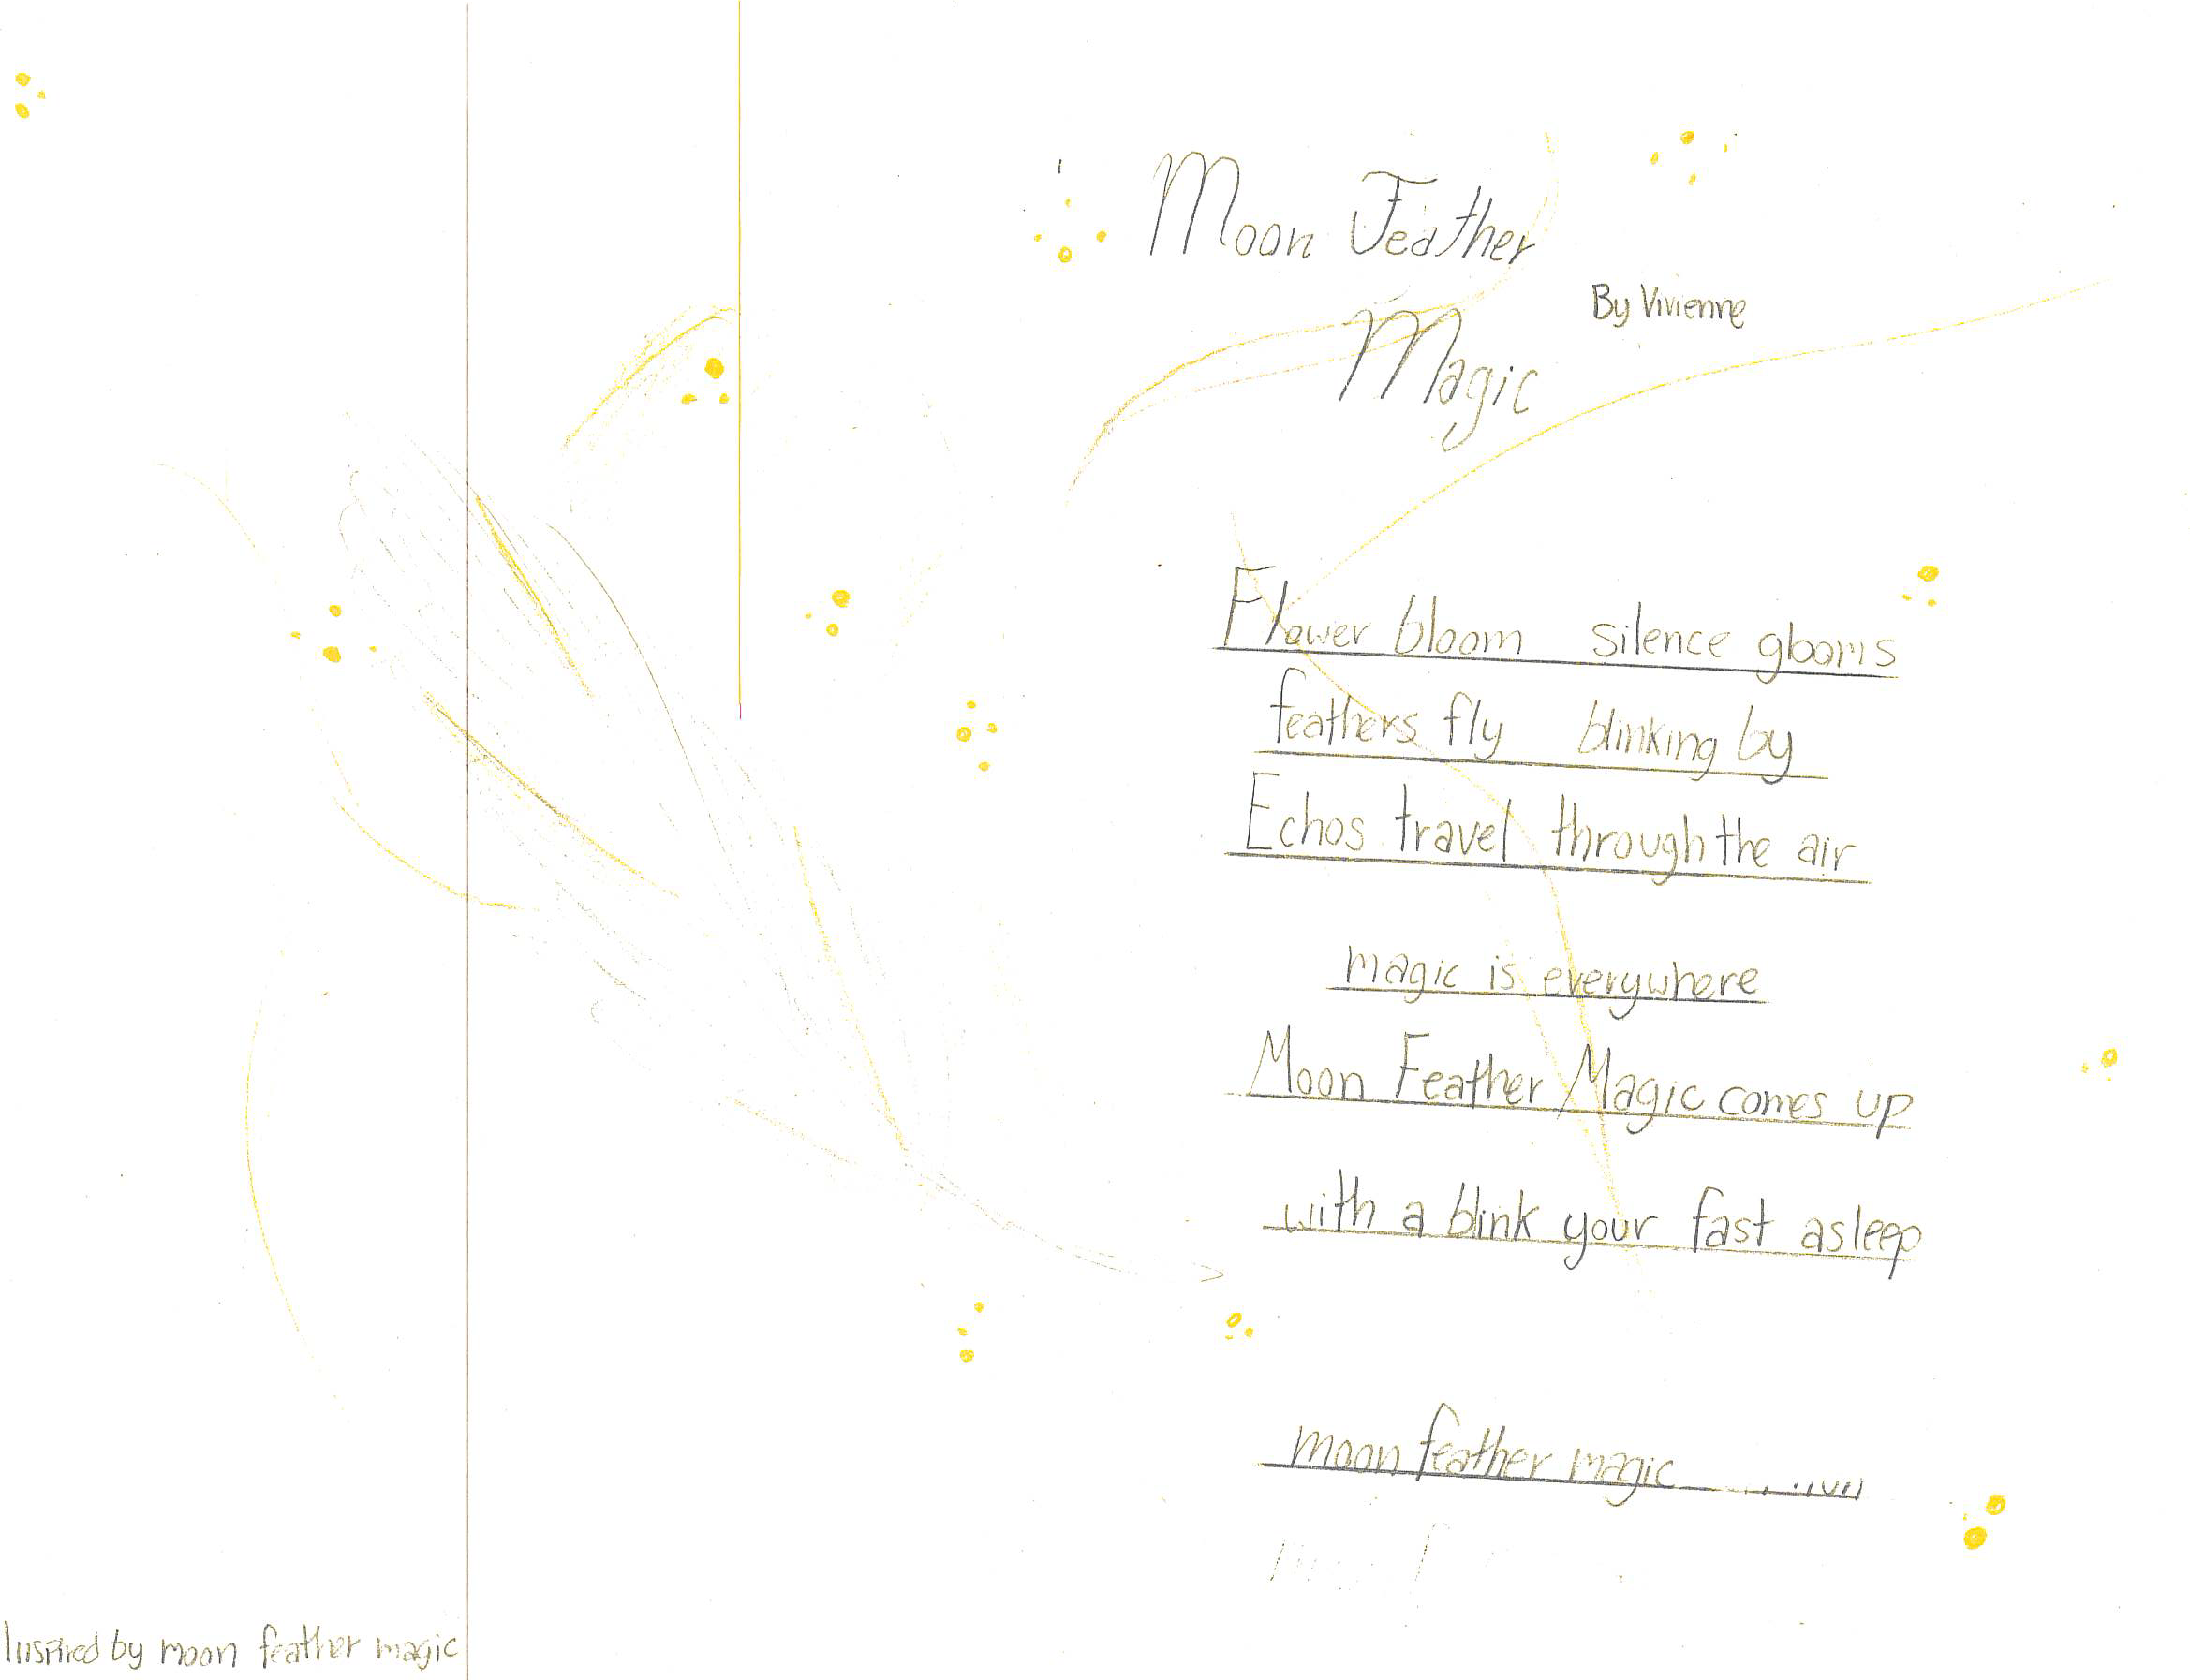 Moon Feather
By Vivienne
Magic
Flower bloom silence glooms
feathers fly blinking by
Echos travel through the air
magic is everywhere
Moon Feather Magic comes up
with a blink your fast asleep
moon feather magic
Inspired by moon feather magic